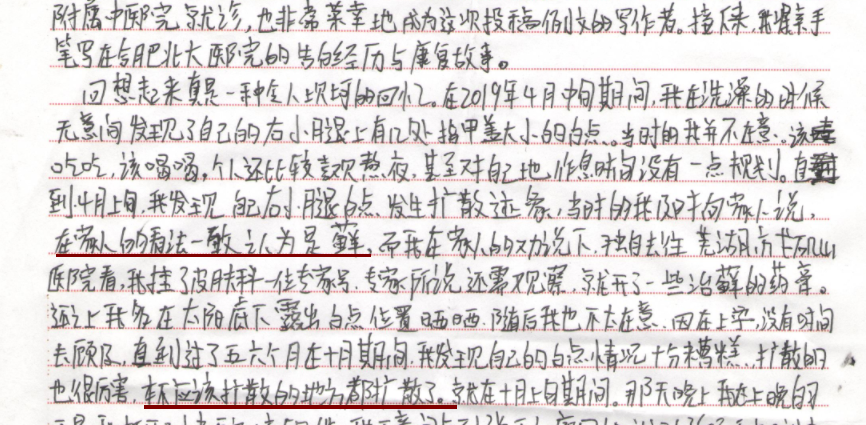 附属中医院就诊,也非常荣幸地成为这次投稿征文的写作者。接下来,我慢亲手
笔写在合肥北大医院的告白经历与康复故事。
回想起来真是一种令人坎坷的回忆。在2019年4月中旬期间,我在洗澡的时候
无意间发现了自己的右小腿上有几处指甲盖大小的白点。当时的我并不在意,该
吃吃,该喝喝,个人还比较喜欢熬夜,甚至对自己地作息时间没有一点规划。直
到4月上旬,我发现自己右小腿白点发生扩散迹象,当时的我及时向家人说,
在家人的看法一致认为是藓,而我在家人的劝说下,独自去往芜湖市弋矶山
医院看,我挂了皮肤科一位专家号,专家所说还需观察,就开了一些治藓的药膏。
还让我多在太阳底下露出白点位置晒晒,随后我也不太在意,因在上学,没有时间
去顾及,直到过了五六个月在十月期间,我发现自己的白点情况十分糟糕,扩散的
也很厉害,本不应该扩散的地方都扩散了。就在十月上旬期间。那天晚上我在上晚自习